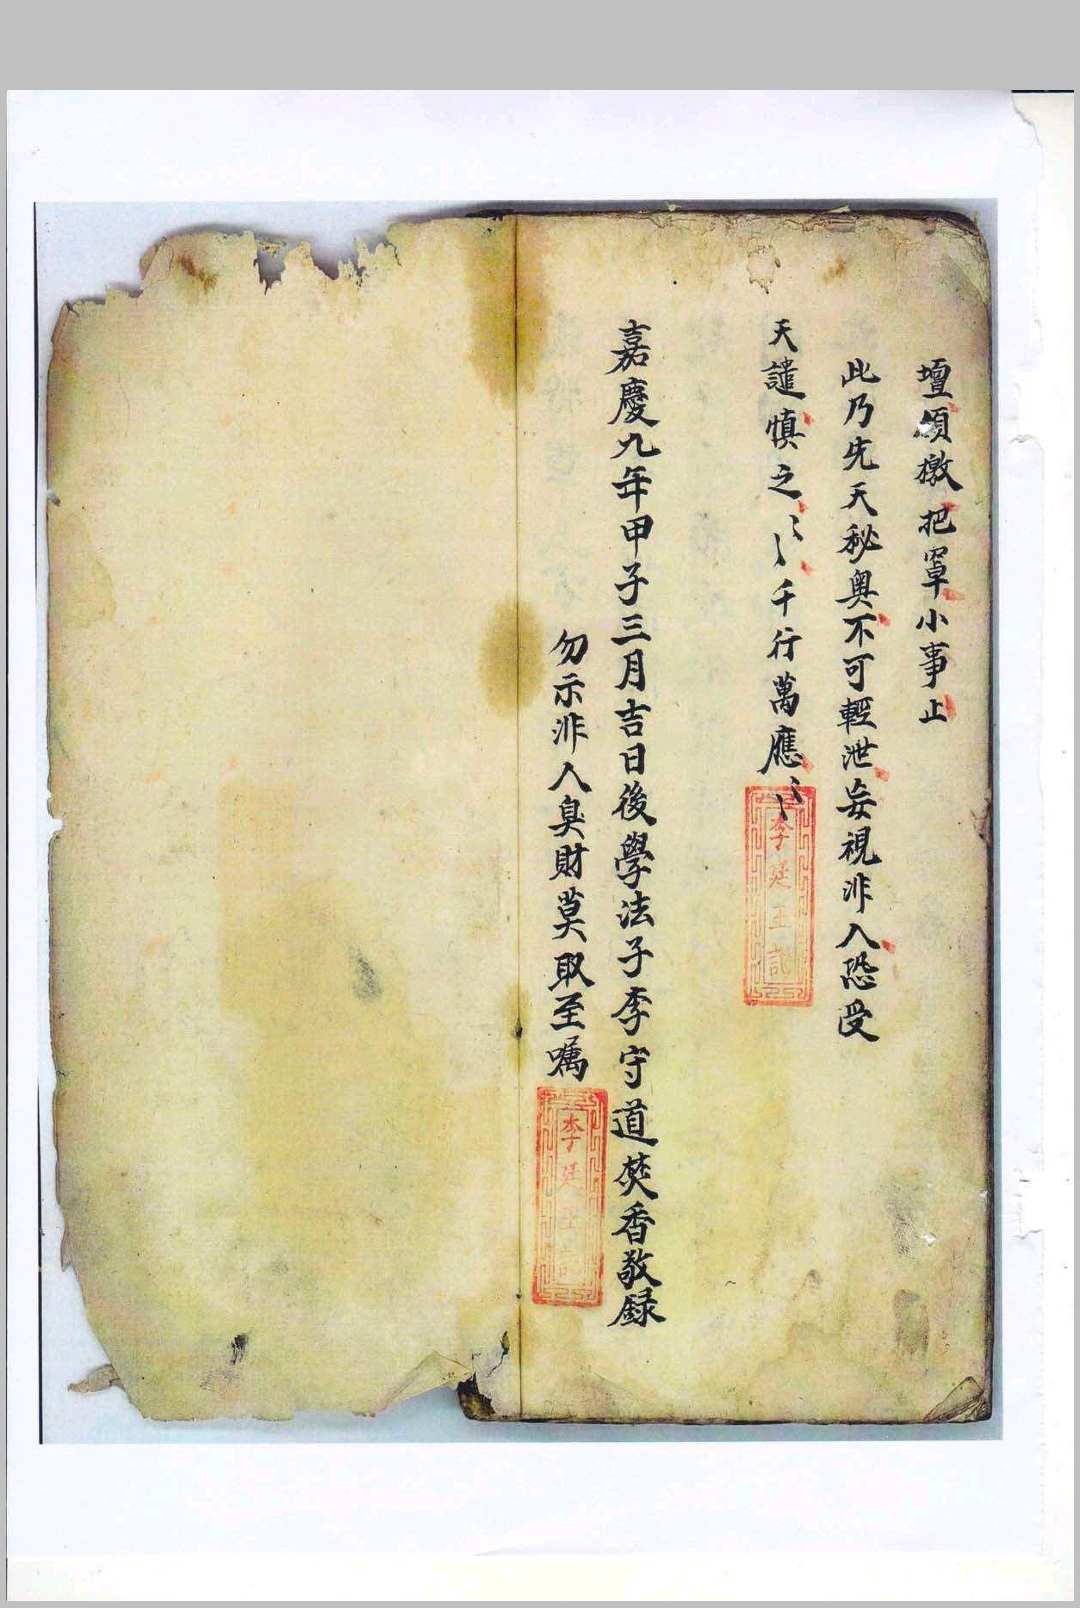 壇頒檄把罩小事止
此乃先天秘奥不可輕泄妄視非人恐受
天譴慎之〻〻千行萬應〻〻
李廷玉記
嘉慶九年甲子三月吉日後學法子李守道焚香敬録
勿示非人臭財莫取至嘱
李廷玉記